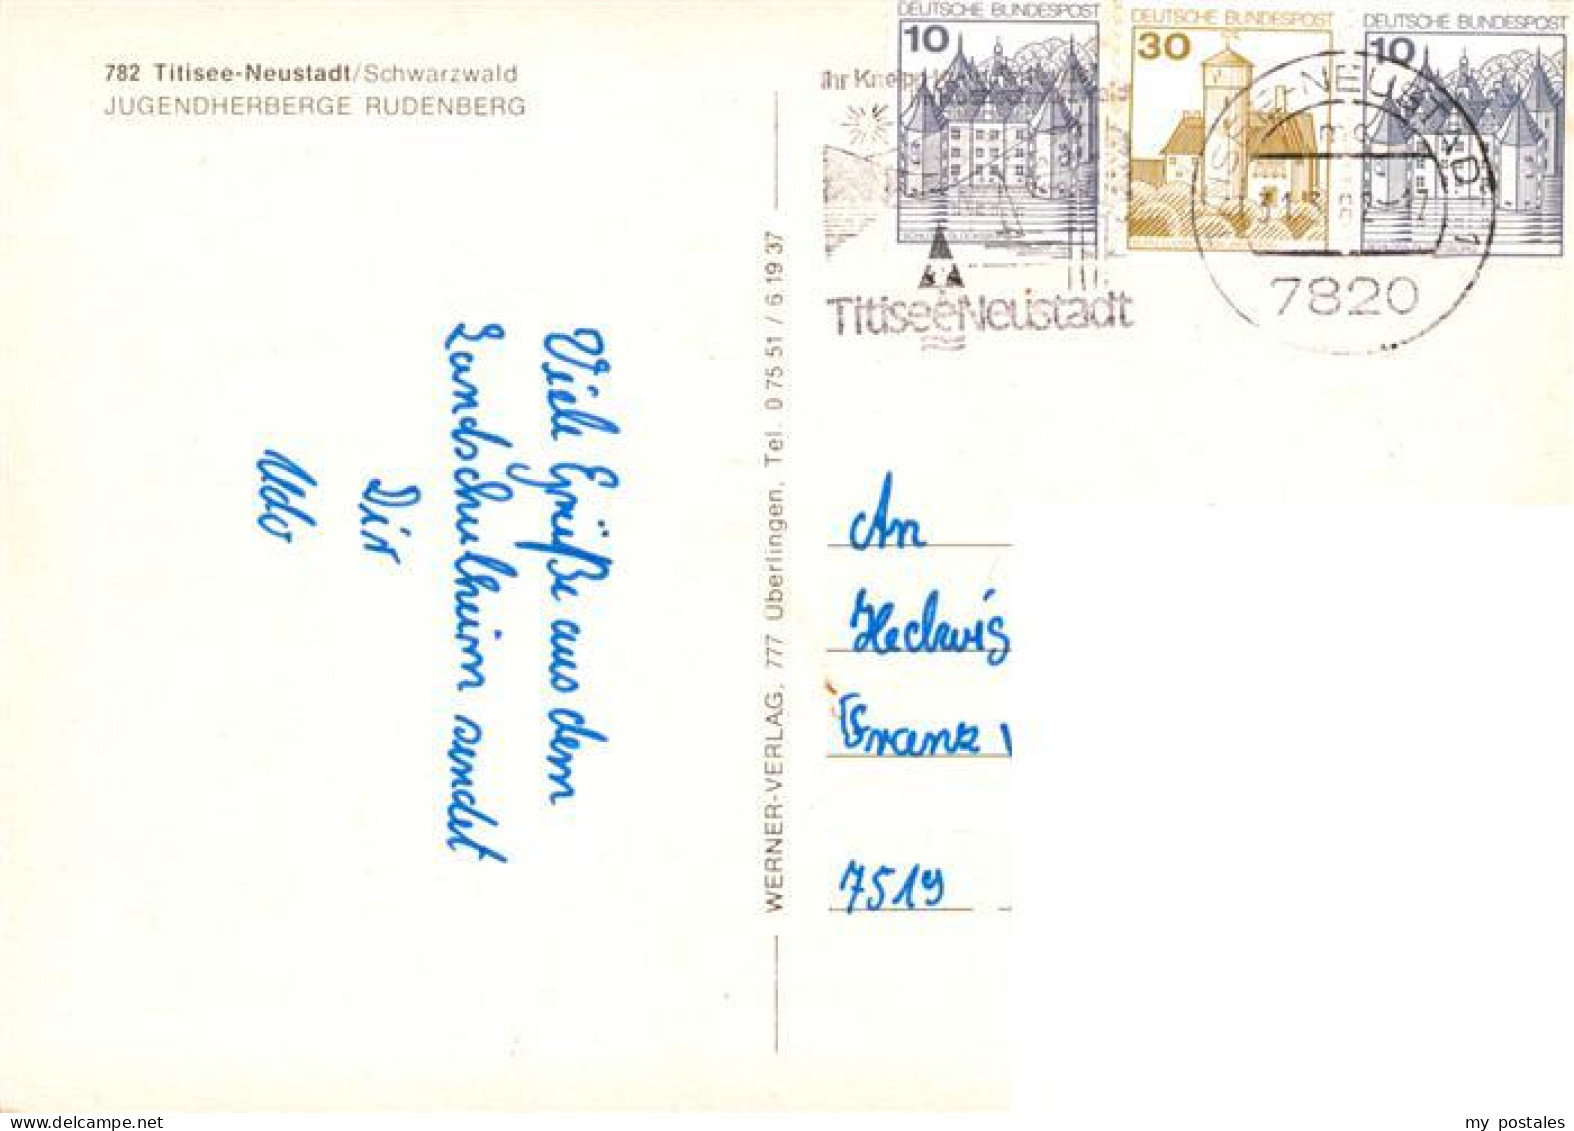 782 Titisee-Neustadt/Schwarzwald
JUGENDHERBERGE RUDENBERG
Viele Grüße aus dem
Landschulheim sendet
Dir
Udo
WERNER-VERLAG, 777 Überlingen, Tel. 0 75 51 / 6 19 37
DEUTSCHE BUNDESPOST
10
DEUTSCHE BUNDESPOST
30
DEUTSCHE BUNDESPOST
10
Ihr
TitiseeNeustadt
7820
An
Hedwig
Frank
7519
my postales